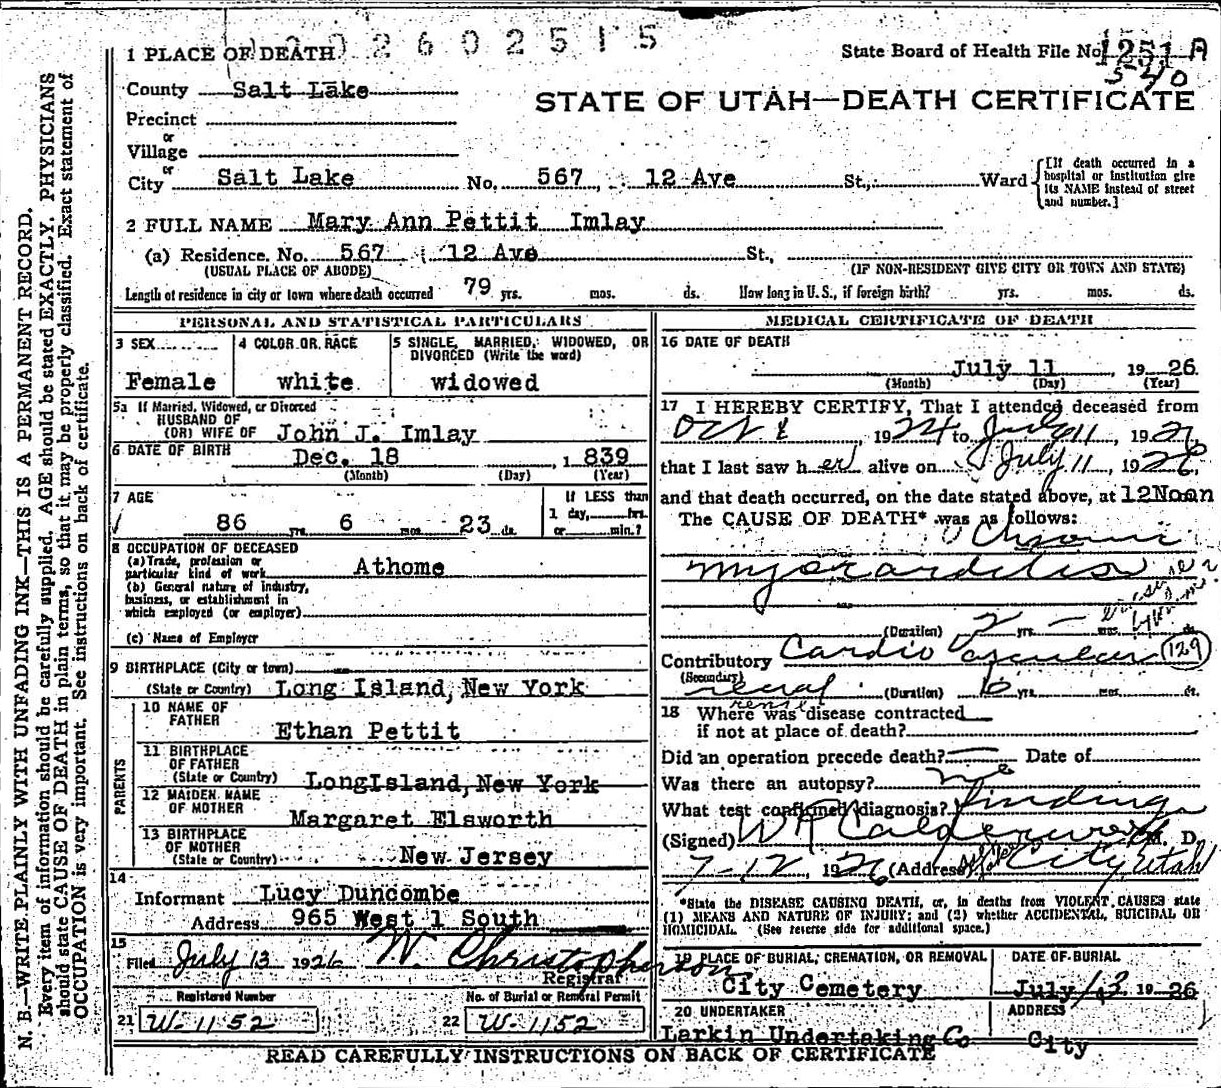 1 PLACE OF DEATH
2602515
State Board of Health File No. 1251 A
5-40
County Salt Lake
STATE OF UTAH—DEATH CERTIFICATE
Precinct
or
Village
or
City Salt Lake No. 567 12 Ave St., Ward
[If death occurred in a
hospital or institution give
its NAME instead of street
and number.]
2 FULL NAME Mary Ann Pettit Imlay
(a) Residence. No. 567 12 Ave St.,
(USUAL PLACE OF ABODE) (IF NON-RESIDENT GIVE CITY OR TOWN AND STATE)
Length of residence in city or town where death occurred 79 yrs. mos. ds. How long in U. S., if foreign birth? yrs. mos. ds.
PERSONAL AND STATISTICAL PARTICULARS
3 SEX 4 COLOR OR RACE 5 SINGLE, MARRIED, WIDOWED, OR
DIVORCED (Write the word)
Female white widowed
5a If Married, Widowed, or Divorced
HUSBAND OF
(OR) WIFE OF John J. Imlay
6 DATE OF BIRTH Dec. 18 1839
(Month) (Day) (Year)
7 AGE If LESS than
1 day, hrs.
86 yrs. 6 mos. 23 ds. or min.?
8 OCCUPATION OF DECEASED
(a) Trade, profession or
particular kind of work Athome
(b) General nature of industry,
business, or establishment in
which employed (or employer)
(c) Name of Employer
9 BIRTHPLACE (City or town)
(State or Country) Long Island, New York
PARENTS
10 NAME OF
FATHER Ethan Pettit
11 BIRTHPLACE
OF FATHER
(State or Country) LongIsland, New York
12 MAIDEN NAME
OF MOTHER Margaret Elsworth
13 BIRTHPLACE
OF MOTHER
(State or Country) New Jersey
14
Informant Lucy Duncombe
Address 965 West 1 South
15
Filed July 13 1926 W. Christopherson
Registrar
Registered Number No. of Burial or Removal Permit
21 W-1152 22 W-1152
MEDICAL CERTIFICATE OF DEATH
16 DATE OF DEATH
July 11 1926
(Month) (Day) (Year)
17 I HEREBY CERTIFY, That I attended deceased from
Oct 1924 to July 11, 1926
that I last saw her alive on July 11, 1926,
and that death occurred, on the date stated above, at 12Noon
The CAUSE OF DEATH* was as follows:
Chronic
myocarditis
(Duration) 2 yrs. mos. ds.
Contributory Cardio Vascular 129
(Secondary)
renal (Duration) 6 yrs. mos. ds.
renal
18 Where was disease contracted
if not at place of death?
Did an operation precede death? Date of
Was there an autopsy? no
What test confirmed diagnosis? findings
(Signed) W R Calderwood M. D.
7-12, 1926 (Address) Salt Lake City, Utah
*State the DISEASE CAUSING DEATH, or, in deaths from VIOLENT CAUSES state
(1) MEANS AND NATURE OF INJURY; and (2) whether ACCIDENTAL, SUICIDAL OR
HOMICIDAL. (See reverse side for additional space.)
19 PLACE OF BURIAL, CREMATION, OR REMOVAL DATE OF BURIAL
City Cemetery July 13 1926
20 UNDERTAKER ADDRESS
Larkin Undertaking Co City
READ CAREFULLY INSTRUCTIONS ON BACK OF CERTIFICATE
N. B.—WRITE PLAINLY WITH UNFADING INK—THIS IS A PERMANENT RECORD.
Every item of information should be carefully supplied. AGE should be stated EXACTLY. PHYSICIANS
should state CAUSE OF DEATH in plain terms, so that it may be properly classified. Exact statement of
OCCUPATION is very important. See instructions on back of certificate.